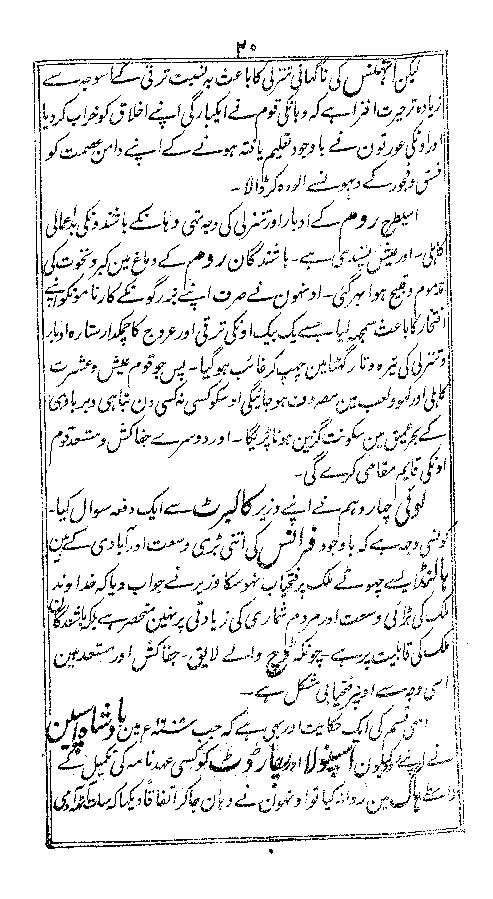 ۳۰
لیکن ایتھنس کی ناگہانی تنزلی کا باعث بہ نسبت ترقی کے اسوجہ سے
زیادہ تر حیرت افزا ہے کہ وہانکی قوم نے ایکبارگی اپنے اخلاق کو خراب کردیا
اور اونکی عورتون نے باوجود تعلیم یافتہ ہونے کے اپنے دامن عصمت کو
فسق و فجور کے دہبونسے آلودہ کر ڈالا -
اسیطرح روم کے ادبار اور تنزلی کی وجہ تہی وہانکے باشندونکی بداعمالی
کاہلی - اور عیش پسندی ہے - باشندگان روم کے دماغ مین کبر و نخوت کی
مذموم و قبیح ہوا بہر گئی - اونہون نے صرف اپنے بزرگونکے کارنامونکو اپنے
افتخار کا باعث سمجھ لیا - جسے یک بیک اونکی ترقی اور عروج کا چمکدار ستارہ ادبار
و تنزلی کی تیرہ و تار گھٹا مین چہپ کر غائب ہوگیا - پس جو قوم عیش و عشرت
کاہلی اور لہو و لعب مین مصروف ہوجائیگی اوسکو کسی نہ کسی دن تباہی و بربادی
کے بحر عمیق مین سکونت گزین ہونا پڑیگا - اور دوسرے جفاکش و مستعد قوم
اونکی قایم مقامی کرے گی -
لوئی چہاردہم نے اپنے وزیر کالبرٹ سے ایک دفعہ سوال کیا -
کونسی وجہ ہے کہ باوجود فرانس کی اتنی بڑی وسعت اور آبادی کے مین
ہالنڈ ایسے چہوٹے ملک پر فتحیاب نہو سکا وزیر نے جواب دیا کہ خداوند
ملک کی بڑائی وسعت اور مردم شماری کی زیادتی پر نہین منحصر ہے بلکہ باشندگان
ملک کی قابلیت پر ہے - چونکہ ڈچ والے لایق - جفاکش اور مستعد ہین
اسی وجہ سے اونپر فتحیابی مشکل ہے -
اسی قسم کی ایک حکایت اور بہی ہے کہ جب سنہ ۱۶ء مین بادشاہ اسپین
نے اپنے اسپنولا اور رچارڈٹ کو کسی عہدنامہ کی تکمیل کے
واسطے ہاگ مین روانہ کیا تو اونہون نے وہان جاکر اتفاقاً دیکہا کہ آدمی